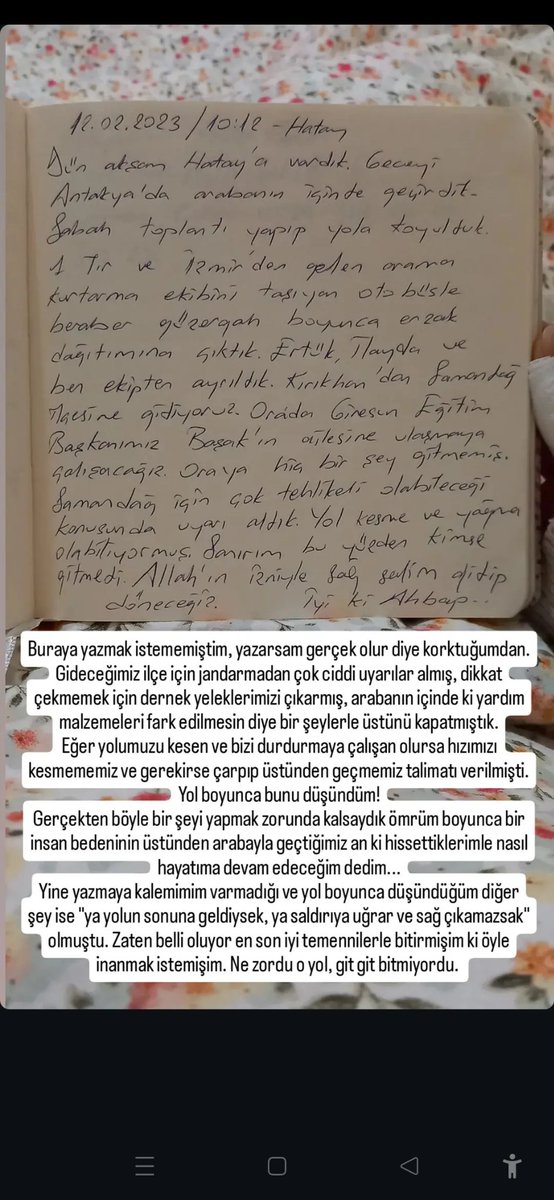 12.02.2023 / 10:12 - Hatay
Dün akşam Hatay'a vardık. Geceyi
Antakya'da arabanın içinde geçirdik.
Sabah toplantı yapıp yola koyulduk.
1 Tır ve İzmir'den gelen arama
kurtarma ekibini taşıyan otobüsle
beraber güzergah boyunca erzak
dağıtımına çıktık. Ertük, İlayda ve
ben ekipten ayrıldık. Kırıkhan'dan Samandağ
ilçesine gidiyoruz. Orada Giresun Eğitim
Başkanımız Başak'ın ailesine ulaşmaya
çalışacağız. Oraya hiç bir şey gitmemiş.
Samandağ için çok tehlikeli olabileceği
konusunda uyarı aldık. Yol kesme ve yağma
olabiliyormuş. Sanırım bu yüzden kimse
gitmedi. Allah'ın izniyle sağ salim gidip
döneceğiz. İyi ki Ahbap..
Buraya yazmak istememiştim, yazarsam gerçek olur diye korktuğumdan.
Gideceğimiz ilçe için jandarmadan çok ciddi uyarılar almış, dikkat
çekmemek için dernek yeleklerimizi çıkarmış, arabanın içinde ki yardım
malzemeleri fark edilmesin diye bir şeylerle üstünü kapatmıştık.
Eğer yolumuzu kesen ve bizi durdurmaya çalışan olursa hızımızı
kesmememiz ve gerekirse çarpıp üstünden geçmemiz talimatı verilmişti.
Yol boyunca bunu düşündüm!
Gerçekten böyle bir şeyi yapmak zorunda kalsaydık ömrüm boyunca bir
insan bedeninin üstünden arabayla geçtiğimiz an ki hissettiklerimle nasıl
hayatıma devam edeceğim dedim...
Yine yazmaya kalemimim varmadığı ve yol boyunca düşündüğüm diğer
şey ise "ya yolun sonuna geldiysek, ya saldırıya uğrar ve sağ çıkamazsak"
olmuştu. Zaten belli oluyor en son iyi temennilerle bitirmişim ki öyle
inanmak istemişim. Ne zordu o yol, git git bitmiyordu.